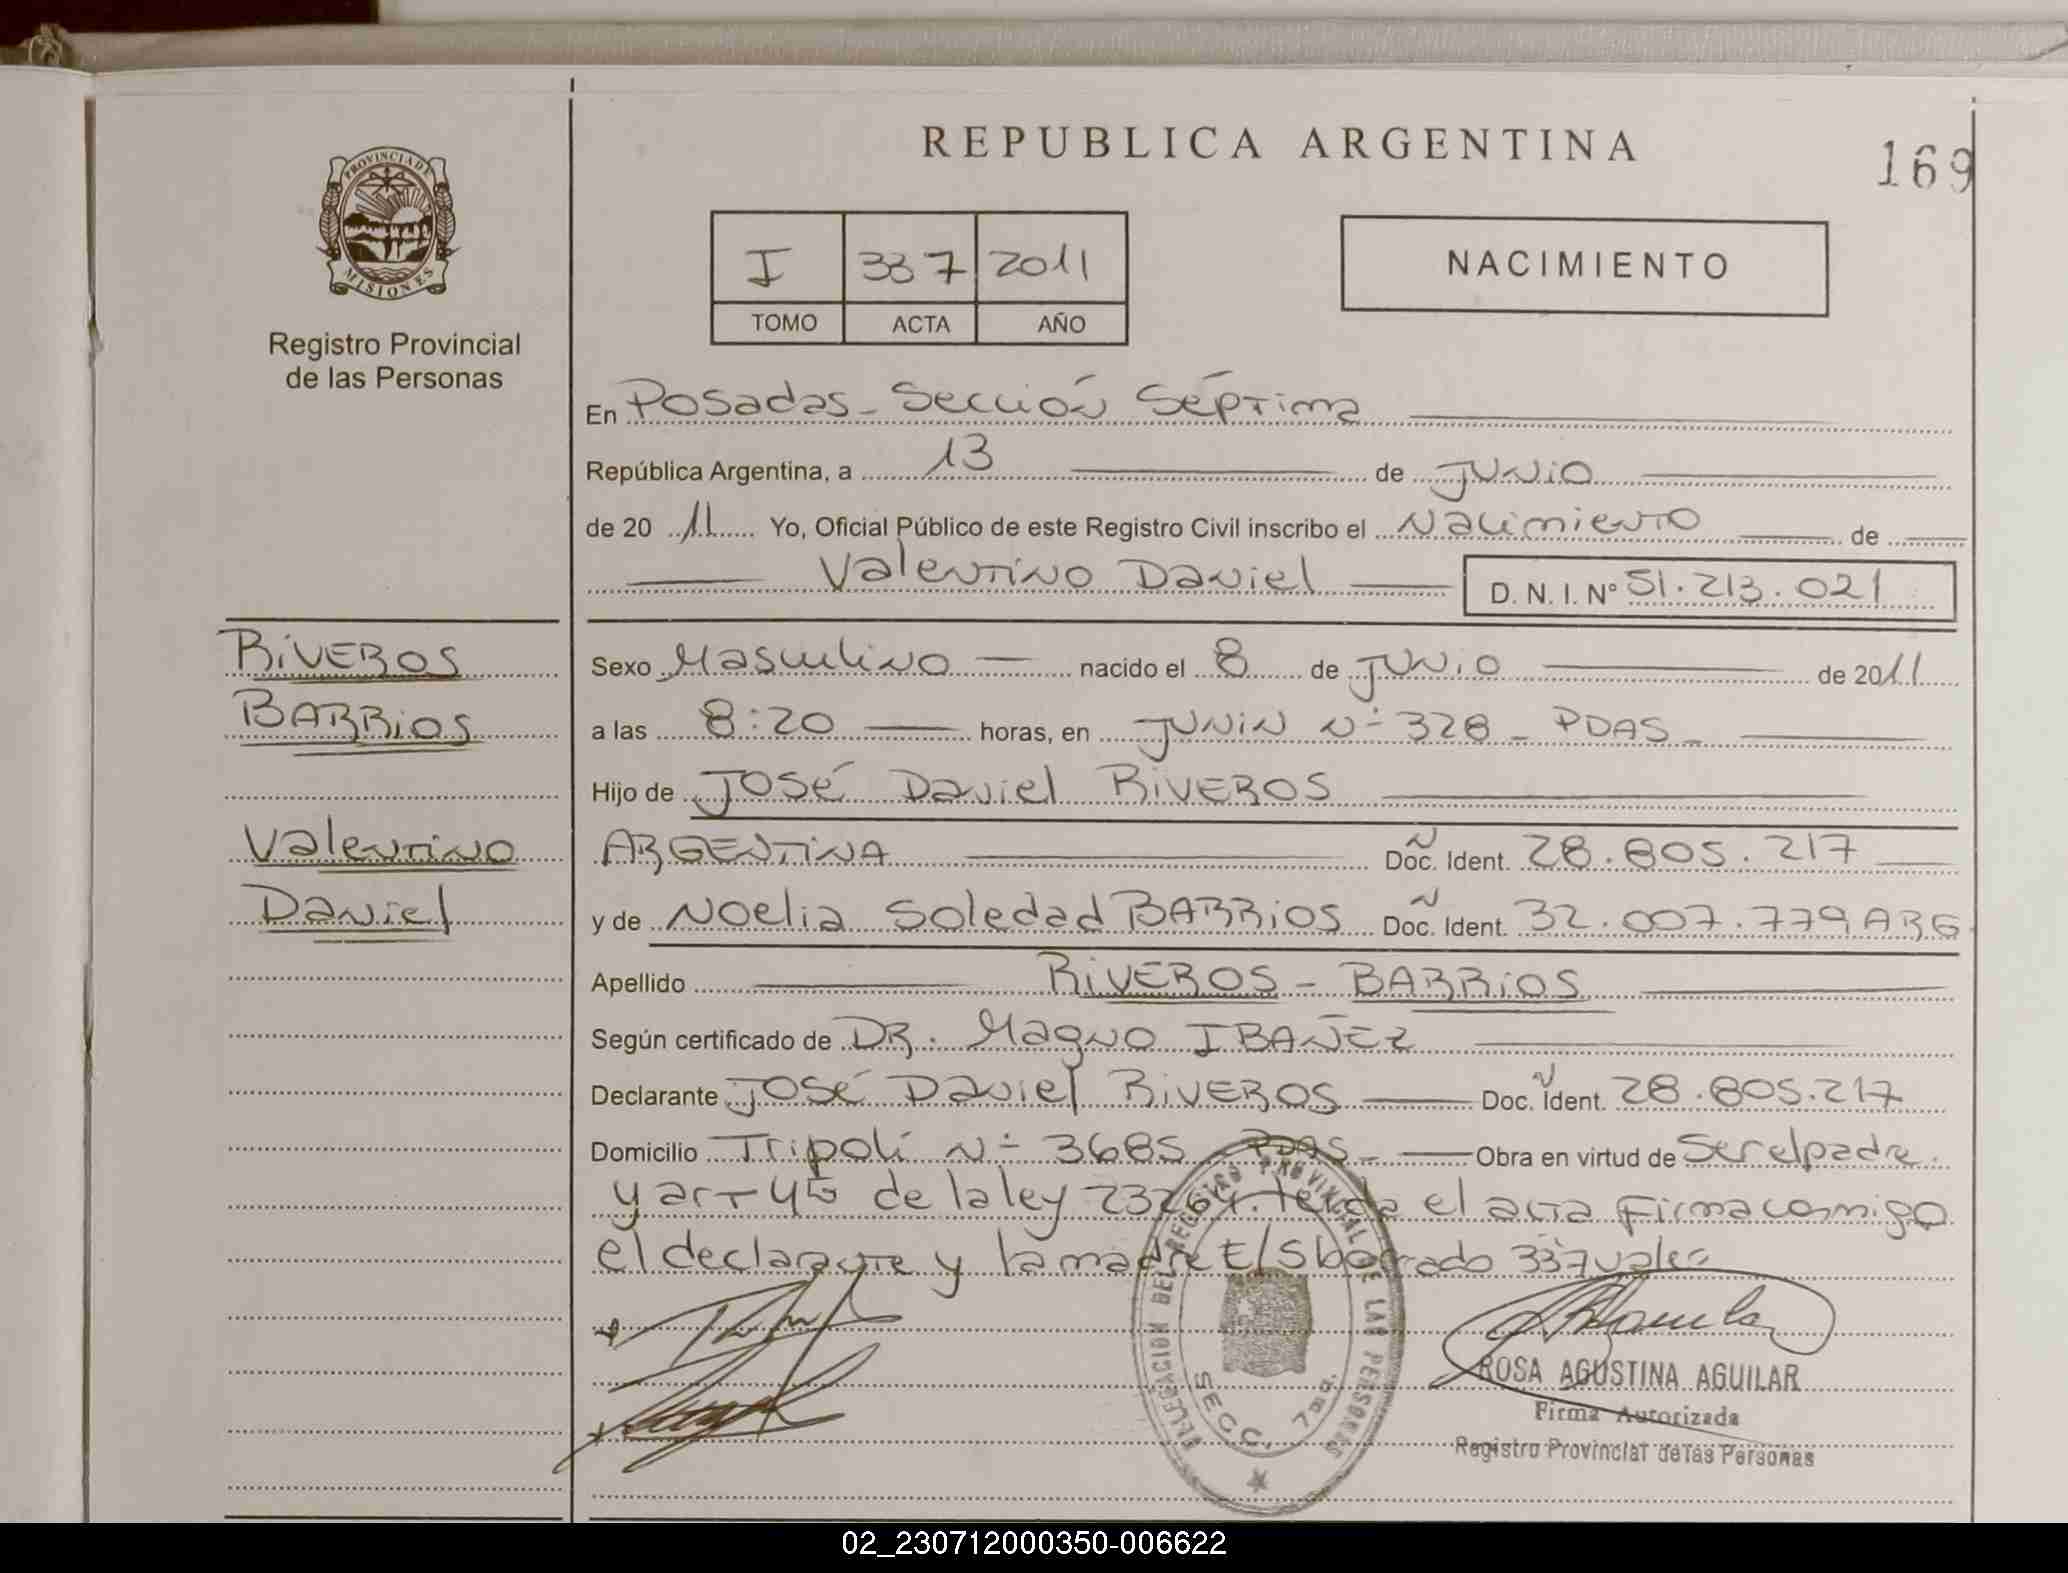 REPUBLICA ARGENTINA
169
PROVINCIA DE
MISIONES
Registro Provincial
de las Personas
I 337 2011
TOMO ACTA AÑO
NACIMIENTO
En Posadas - Sección Séptima
República Argentina, a 13 de Junio
de 20 11 Yo, Oficial Público de este Registro Civil inscribo el Nacimiento de
Valentino Daniel D. N. I. Nº 51.213.021
RIVEROS
BARRIOS
Valentino
Daniel
Sexo Masculino nacido el 8 de Junio de 2011
a las 8:20 horas, en Junin Nº 328 - PDAS -
Hijo de José Daniel RIVEROS
ARGENTINA Doc. Ident. 28.805.217
y de Noelia Soledad BARRIOS Doc. Ident. 32.007.779 ARG
Apellido RIVEROS - BARRIOS
Según certificado de DR. Magno IBAÑEZ
Declarante José Daniel RIVEROS Doc. Ident. 28.805.217
Domicilio Tripoli Nº 3685 PDAS - Obra en virtud de Ser el padre.
y art 45 de la ley 23264. leida el acta firma conmigo
el declarante y la madre E/S borrado 337 vale
DELEGACION DEL REGISTRO PROVINCIAL DE LAS PERSONAS
SECC. 7ma.
ROSA AGUSTINA AGUILAR
Firma Autorizada
Registro Provincial de las Personas
02_230712000350-006622